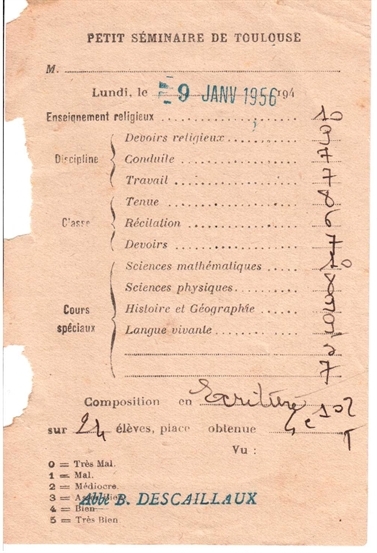 PETIT SÉMINAIRE DE TOULOUSE
M.
Lundi, le 9 JANV 1956 194
Enseignement religieux
Discipline
Devoirs religieux
Conduite
Travail
Classe
Tenue
Récitation
Devoirs
Cours spéciaux
Sciences mathématiques
Sciences physiques
Histoire et Géographie
Langue vivante
Composition en Ecriture
sur 24 élèves, place obtenue
Vu :
0 = Très Mal.
1 = Mal.
2 = Médiocre.
3 =
4 = Bien
5 = Très Bien
Abbé B. DESCAILLAUX